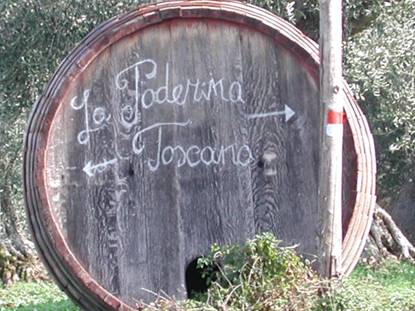 La Poderina
Toscana